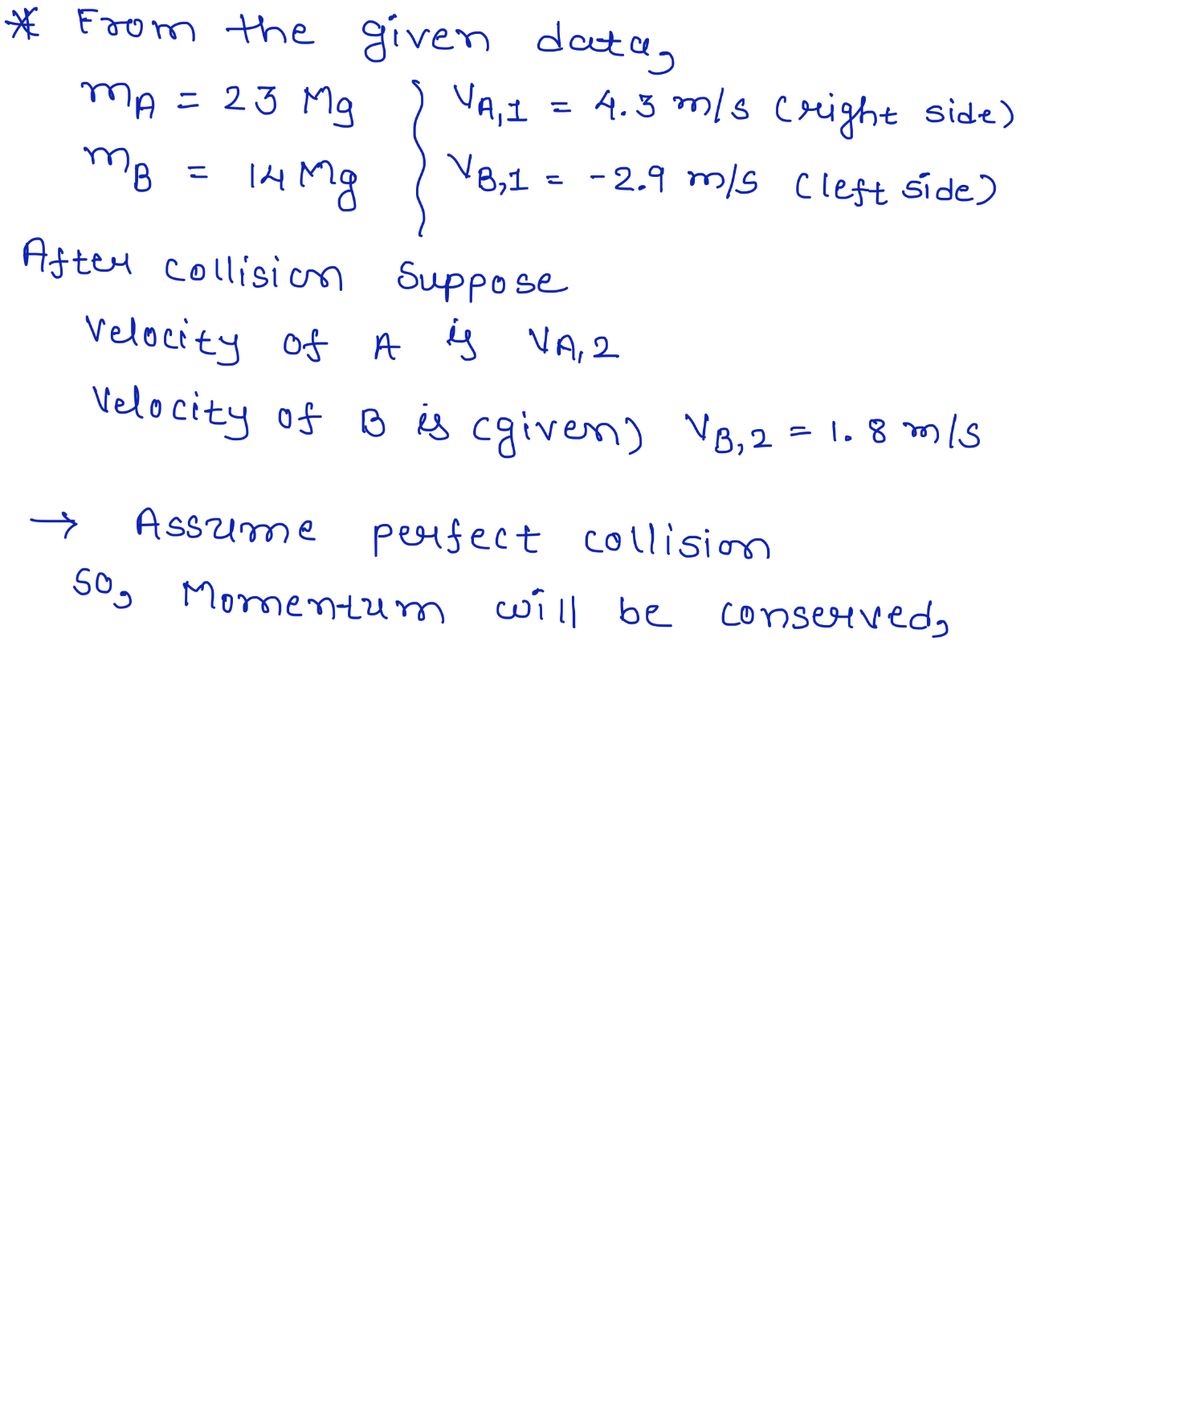 * From the given data,
mA = 23 Mg } VA,1 = 4.3 m/s (right side)
mB = 14 Mg } VB,1 = -2.9 m/s (left side)
After collision suppose
Velocity of A is VA,2
Velocity of B is (given) VB,2 = 1.8 m/s
→ Assume perfect collision
so, Momentum will be conserved,